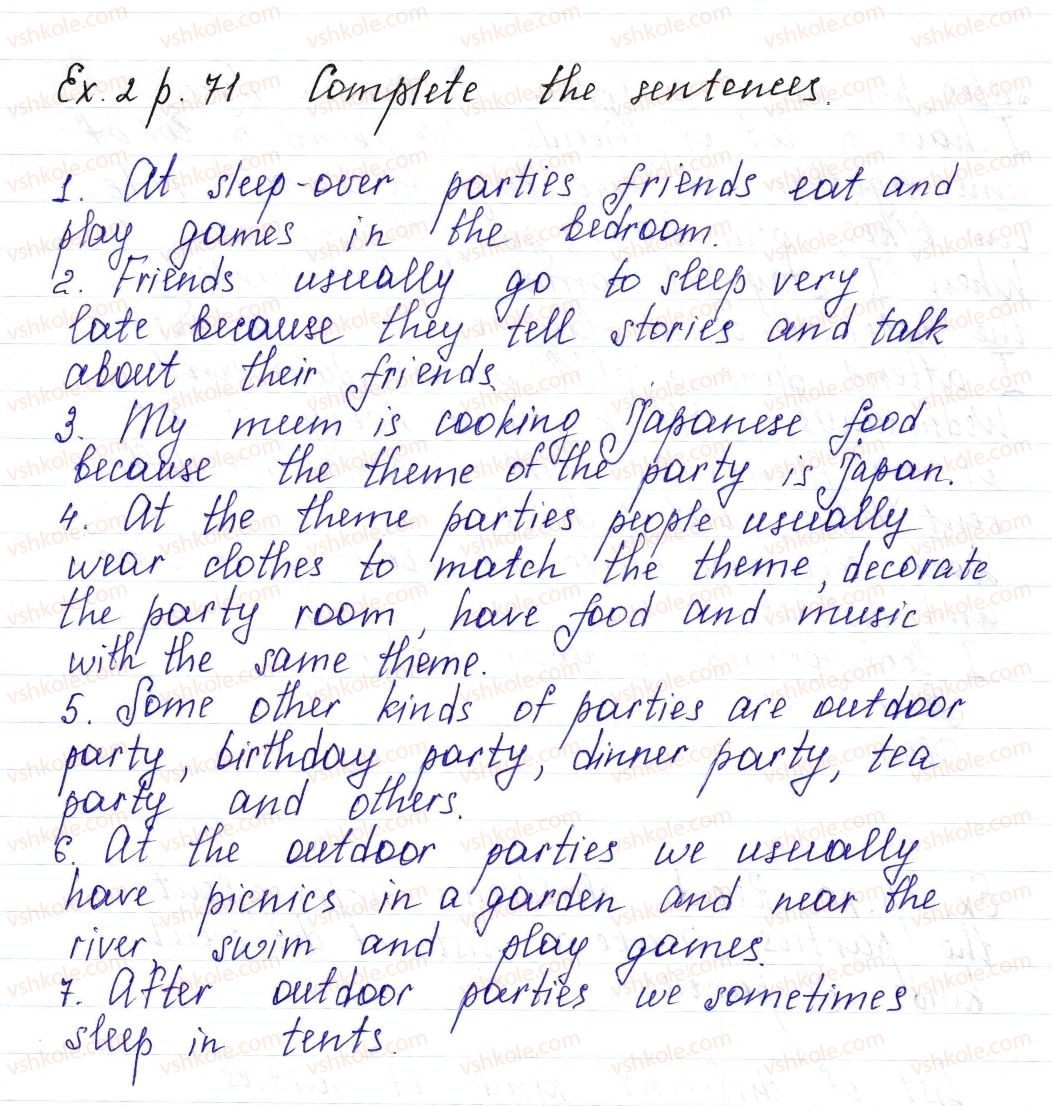 Ex. 2 p. 71 Complete the sentences.
1. At sleep-over parties friends eat and
play games in the bedroom.
2. Friends usually go to sleep very
late because they tell stories and talk
about their friends.
3. My mum is cooking Japanese food
because the theme of the party is Japan.
4. At the theme parties people usually
wear clothes to match the theme, decorate
the party room, have food and music
with the same theme.
5. Some other kinds of parties are outdoor
party, birthday party, dinner party, tea
party and others.
6. At the outdoor parties we usually
have picnics in a garden and near the
river, swim and play games.
7. After outdoor parties we sometimes
sleep in tents.
vshkole.com